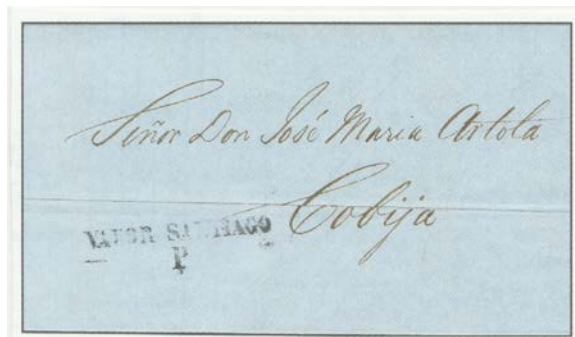 Señor Don José Maria Artola
Cobija
VAPOR SANTIAGO
P